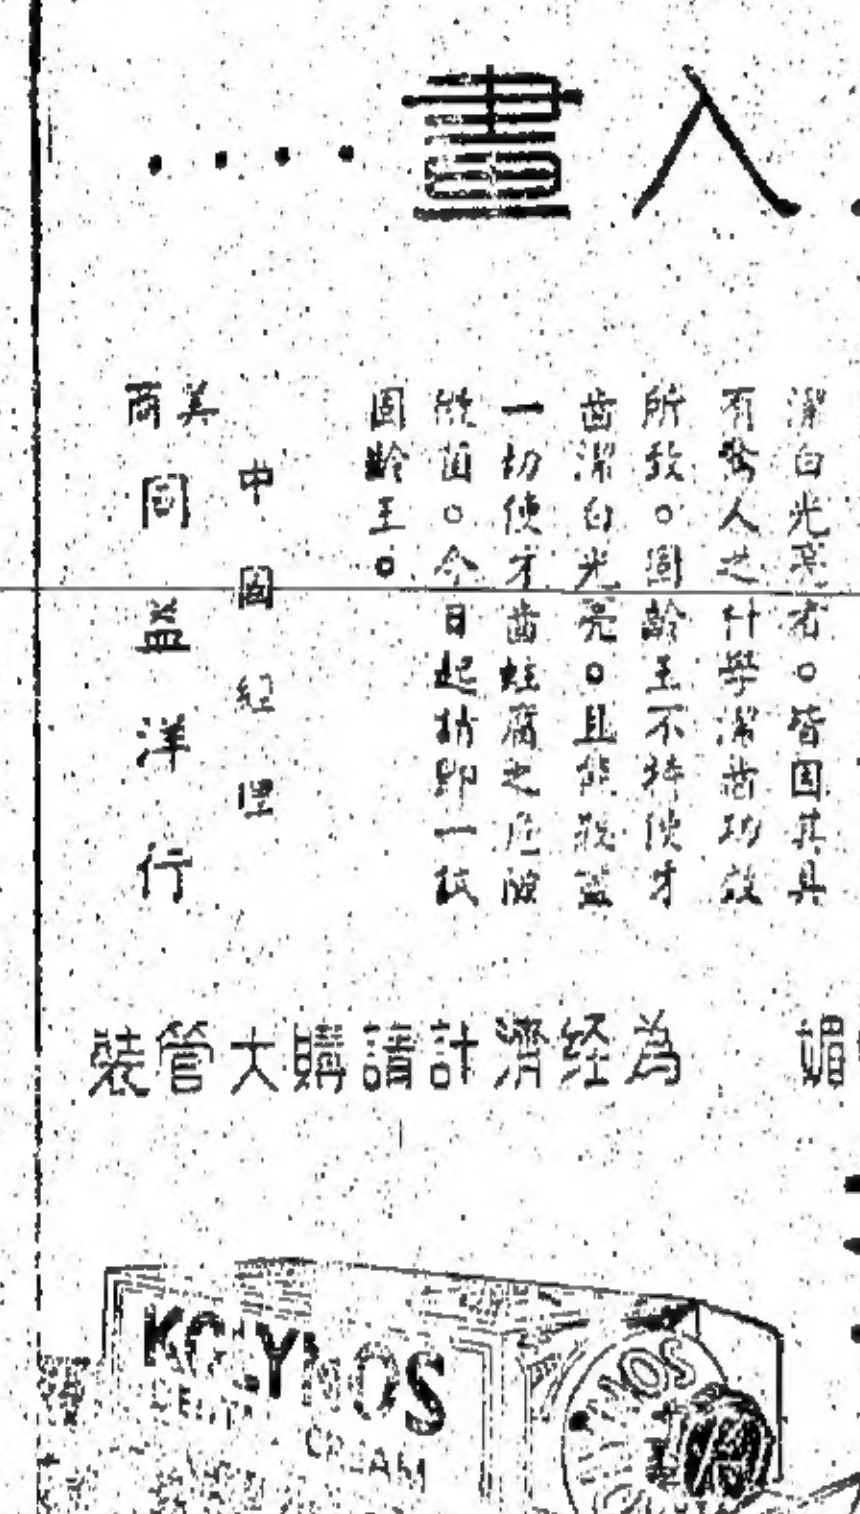 入畫....
潔白光亮者。皆因其具
有驚人之科學潔齒功效
所致。固齡玉不特使牙
齒潔白光亮。且能殺滅
一切使牙齒蛀腐之危險
微菌。今日起請即一試
固齡玉。
中國經理
美商
同益洋行
媚
為経濟計請購大管裝
KOLYNOS
DENTAL
CREAM